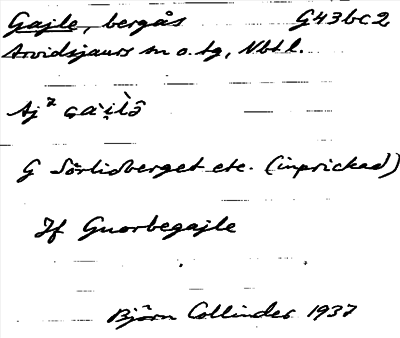 Gajle, bergås G43bc2
Arvidsjaurs sn o. tg, Nbt l.
Aj² 
G Sörlidberget etc. (inprickad)
Jf Guorbegajle
Björn Collinder 1937